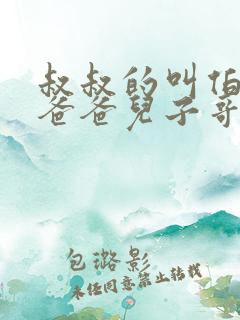 叔叔的叫伯
爸爸兒子哥
包璐影
未任同意禁止转载